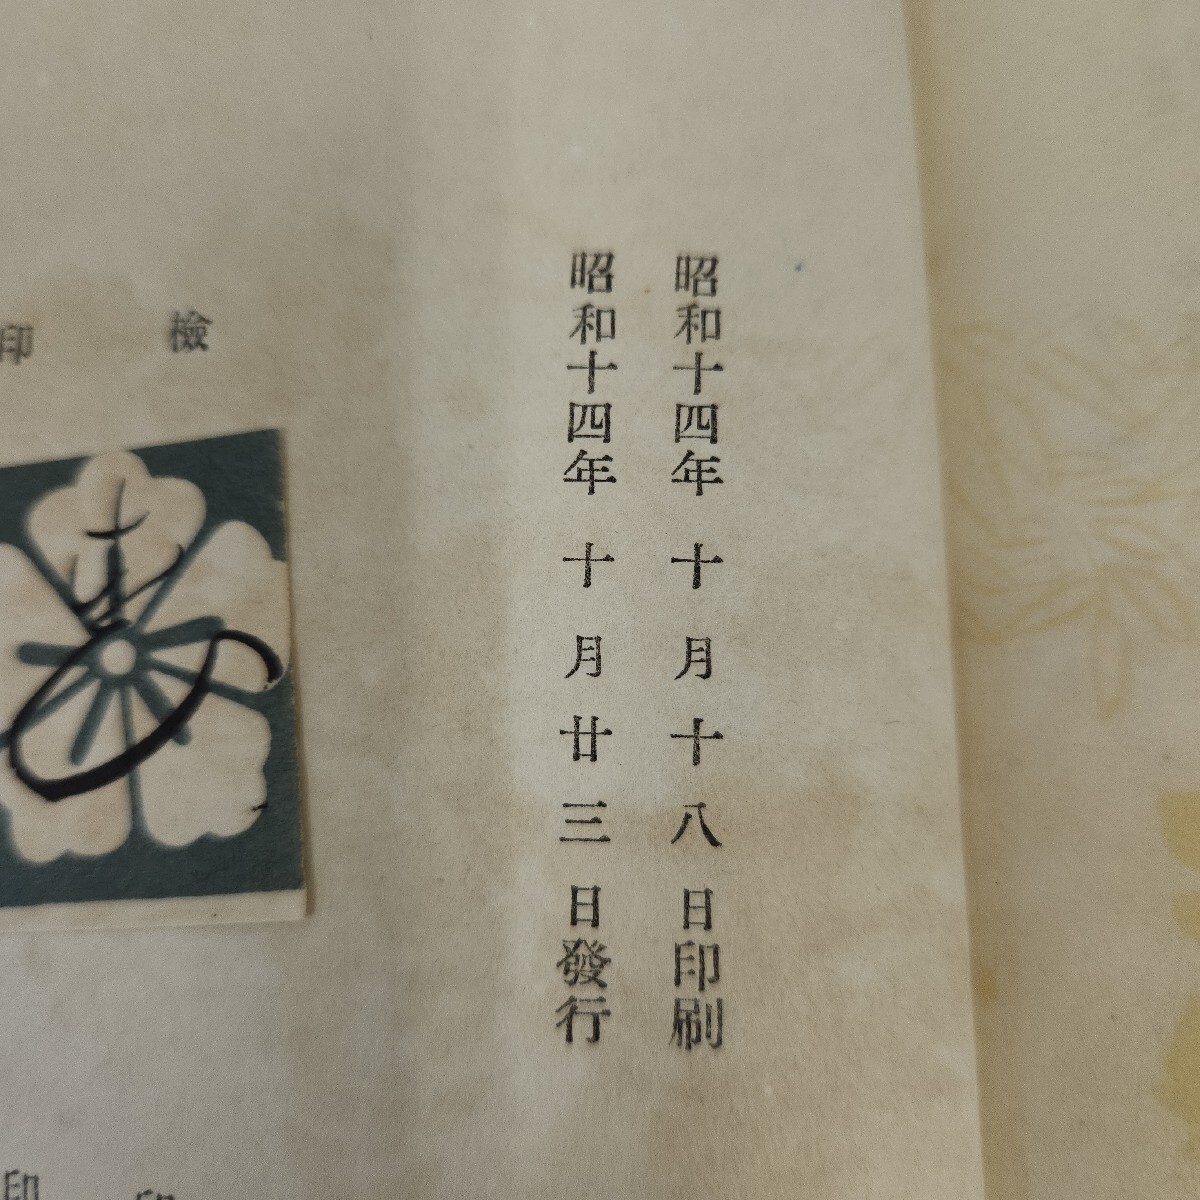 昭和十四年十月十八日印刷
昭和十四年十月廿三日發行
檢印
印
印